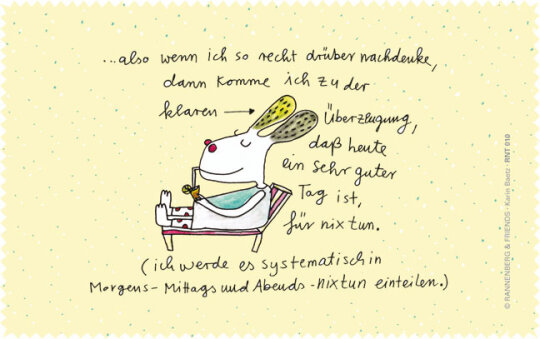 ...also wenn ich so recht drüber nachdenke,
dann komme ich zu der
klaren → Überzeugung,
daß heute
ein sehr guter
Tag ist,
für nix tun.
(ich werde es systematisch in
Morgens- Mittags und Abends -nixtun einteilen.)
© RANNENBERG & FRIENDS · Karin Baetz · RNT 010